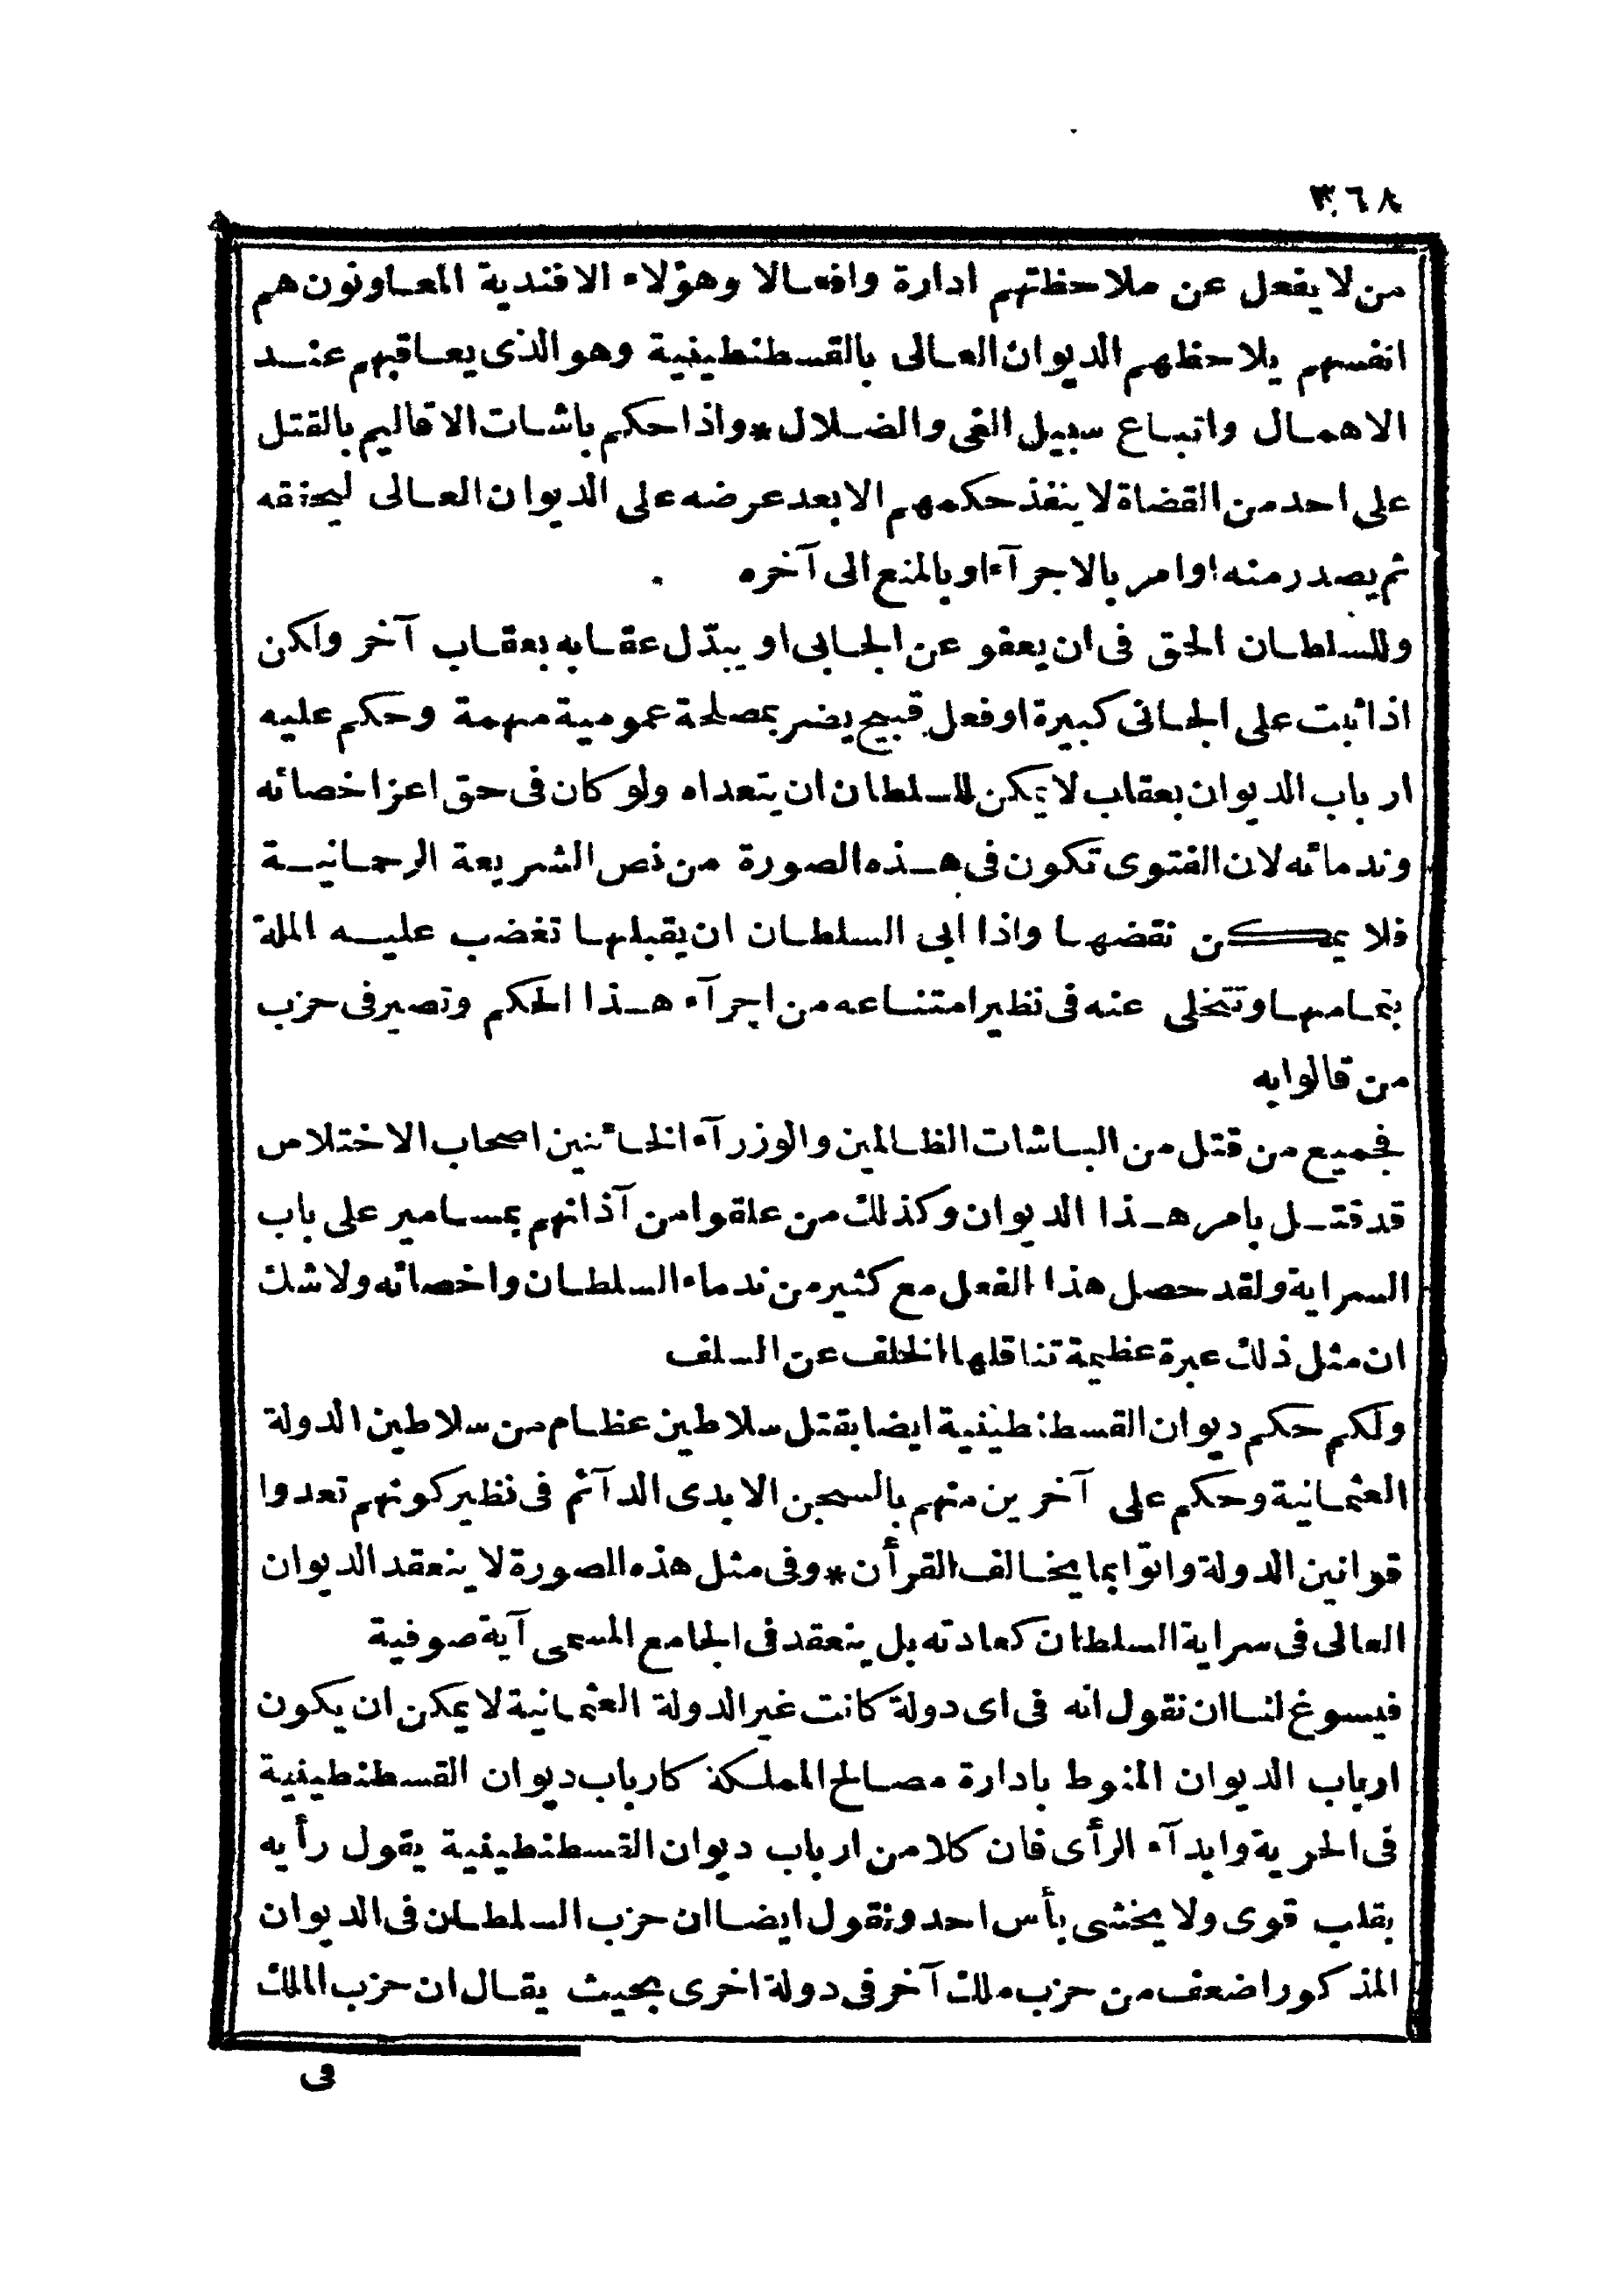 ٣٦٨
من لا يغفل عن ملاحظتهم ادارة وافعالا وهؤلاء الافندية المعاونون هم
انفسهم يلاحظهم الديوان العالى بالقسطنطينية وهو الذى يعاقبهم عند
الاهمال واتباع سبيل الغى والضلال * واذا حكم باشات الاقاليم بالقتل
على احد من القضاة لا ينفذ حكمهم الا بعد عرضه على الديوان العالى ليحققه
ثم يصدر منه اوامر بالاجرآء او بالمنع الى آخره
وللسلطان الحق فى ان يعفو عن الجابى او يبدّل عقابه بعقاب آخر ولكن
اذا ثبت على الجانى كبيرة او فعل قبيح يضر بمصلحة عمومية مهمة وحكم عليه
ارباب الديوان بعقاب لا يمكن للسلطان ان يتعداه ولو كان فى حق اعز اخصائه
وندمائه لان الفتوى تكون فى هذه الصورة من نص الشريعة الرحمانية
فلا يمكن نقضها واذا ابى السلطان ان يقبلها تغضب عليه الملة
بتمامها وتتخلى عنه فى نظير امتناعه من اجرآء هذا الحكم وتصير فى حزب
من قالوا به
فجميع من قتل من الباشات الظالمين والوزرآء الخائنين اصحاب الاختلاس
قد قتل بامر هذا الديوان وكذلك من علقوا من آذانهم بمسامير على باب
السراية ولقد حصل هذا الفعل مع كثير من ندماء السلطان واخصائه ولا شك
ان مثل ذلك عبرة عظيمة تناقلها الخلف عن السلف
ولكم حكم ديوان القسطنطينية ايضا بقتل سلاطين عظام من سلاطين الدولة
العثمانية وحكم على آخرين منهم بالسجن الابدى الدآئم فى نظير كونهم تعدوا
قوانين الدولة واتوا بما يخالف القرأن * وفى مثل هذه الصورة لا ينعقد الديوان
العالى فى سراية السلطان كعادته بل ينعقد فى الجامع المسمى آية صوفية
فيسوغ لنا ان نقول انه فى اى دولة كانت غير الدولة العثمانية لا يمكن ان يكون
ارباب الديوان المنوط بادارة مصالح المملكة كارباب ديوان القسطنطينية
فى الحرية وابدآء الرأى فان كلا من ارباب ديوان القسطنطينية يقول رأيه
بقلب قوى ولا يخشى بأس احد ونقول ايضا ان حزب السلطان فى الديوان
المذكور اضعف من حزب ملك آخر فى دولة اخرى بحيث يقال ان حزب الملك
فى